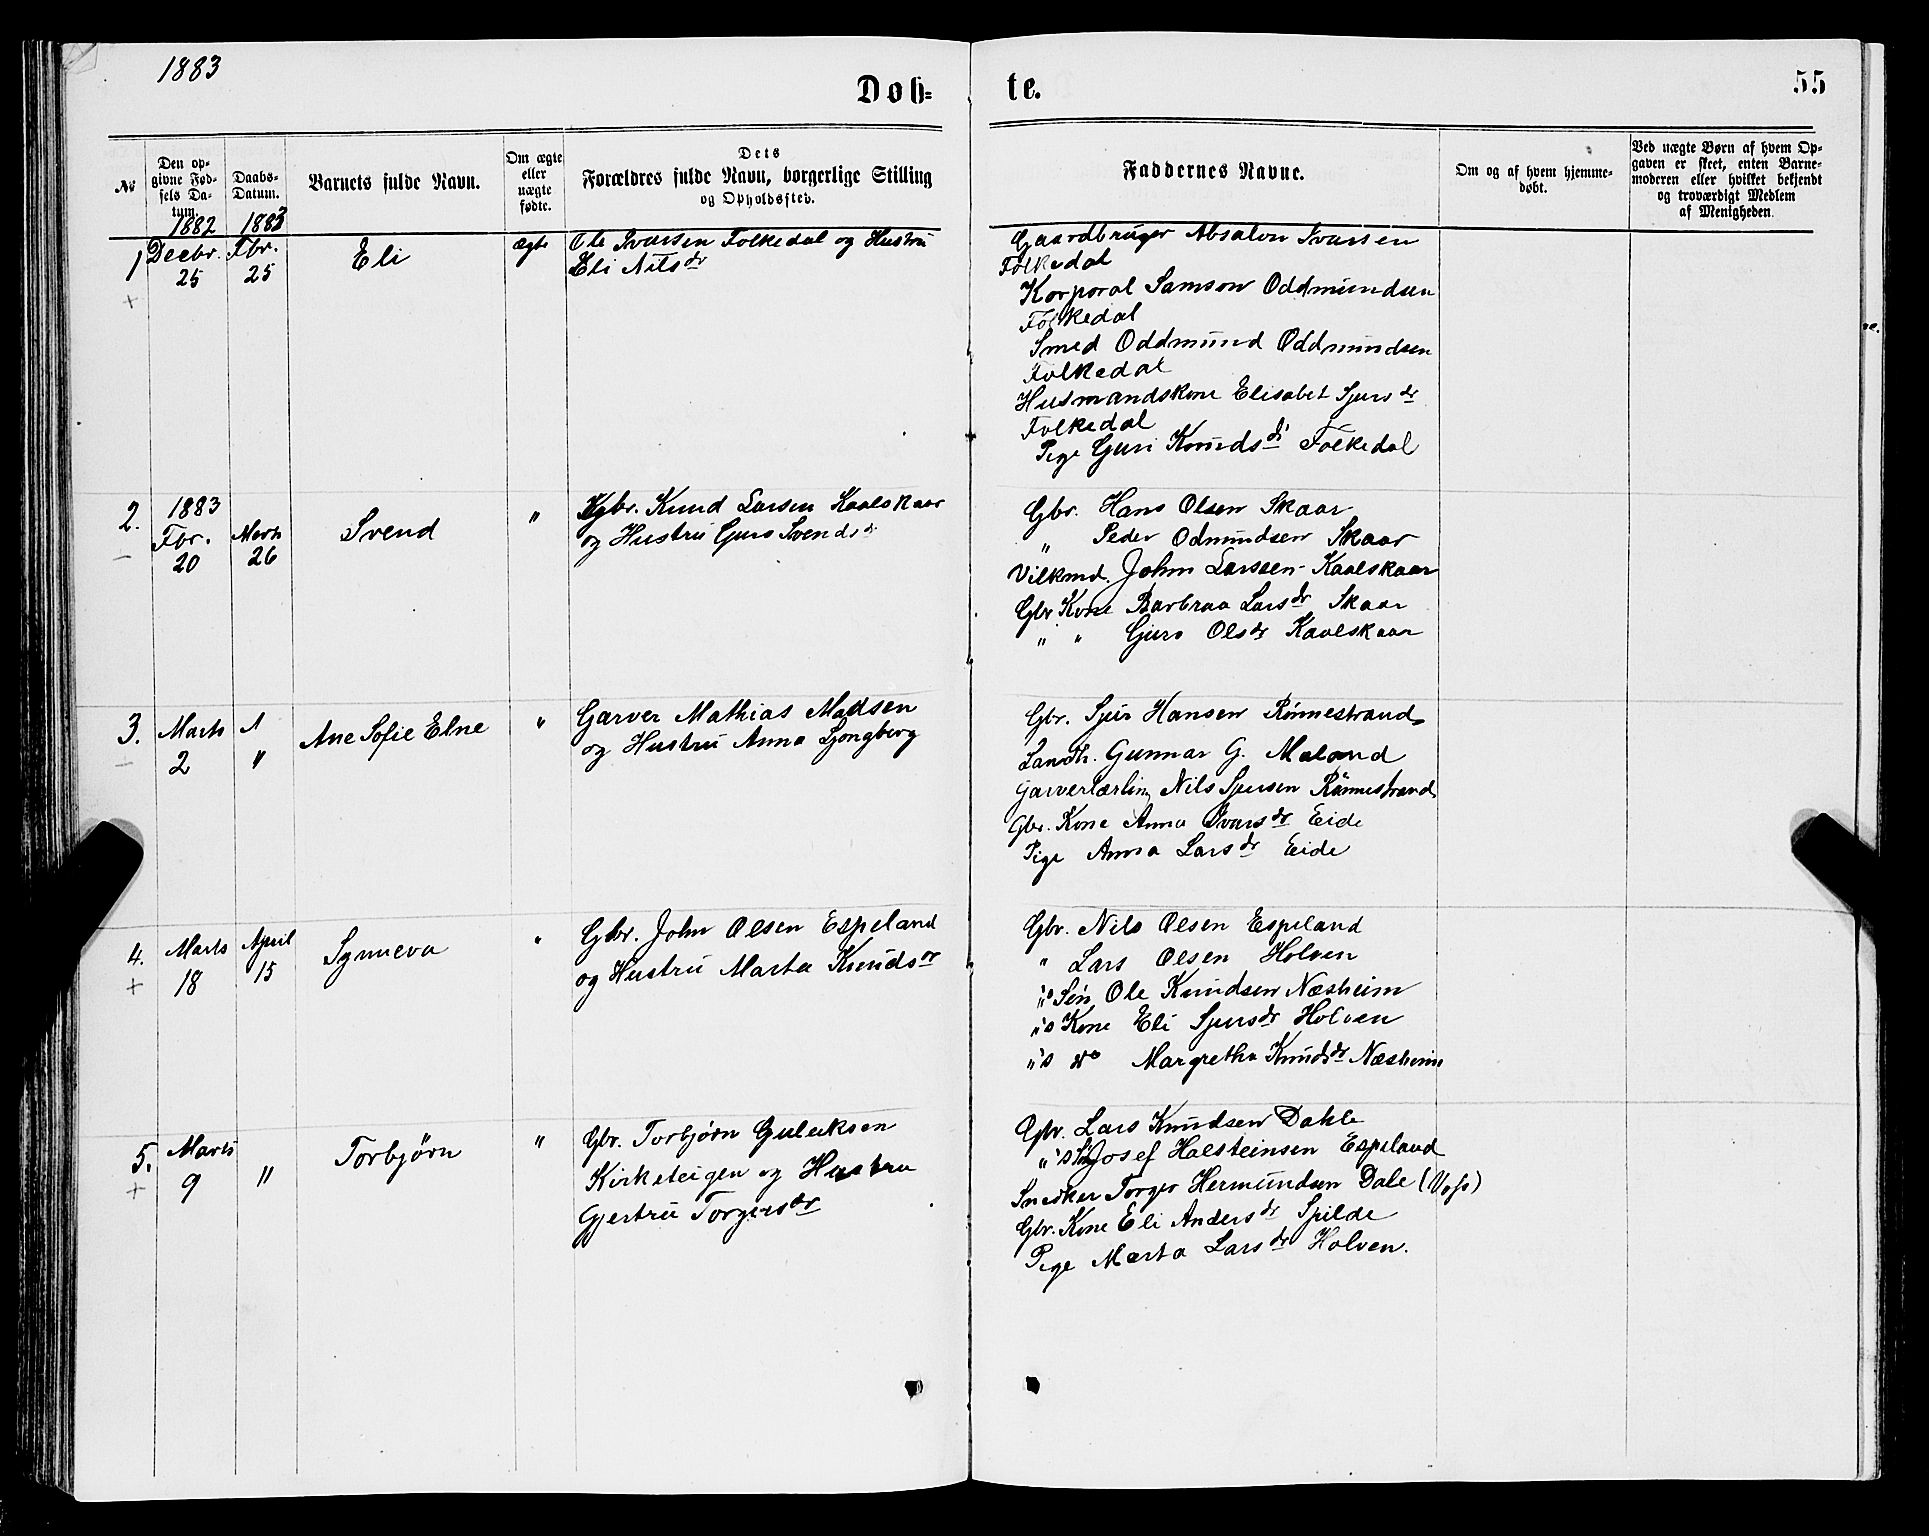 1883
Døb=
te.
55
№
Den op-
givne Fød-
sels Da-
tum.
Daabs-
Datum.
Barnets fulde Navn.
Om ægte
eller
uægte
fødte.
Dets
Forældres fulde Navn, borgerlige Stilling
og Opholdssted.
Faddernes Navne.
Om og af hvem hjemme-
døbt.
Ved uægte Børn af hvem Op-
gaven er skeet, enten Barne-
moderen eller hvilket bekjendt
og troværdigt Medlem
af Menigheden.
1882
1883
1
+
Decbr.
25
Fbr.
25
Eli
ægte
Ole Ivarsen Folkedal og Hustru
Eli Nilsdr
Gaardbruger Absalon Ivarsen
Folkedal
Korporal Samson Oddmundsen
Folkedal
Smed Oddmund Oddmundsen
Folkedal
Husmandskone Elisabet Sjursdr
Folkedal
Pige Guri Knudsdr Folkedal
2.
–
1883
Fbr.
20
Marts
26
Svend
"
Gbr. Knud Larsen Kaalskaar
og Hustru Guro Svendsdr
Gbr. Hans Olsen Skaar
" Peder Odmundsen Skaar
Vilkmd. John Larssen Kaalskaar
Gbr Kone Barbraa Larsdr Skaar
" " Guro Olsdr Kaalskaar
3.
–
Marts
2
"
Ane Sofie Elne
"
Garver Mathias Madsen
og Hustru Anna Ljongberg
Gbr. Sjur Hansen Rønnestrand
Landh. Gunnar G. Maland
Garverlærling Nils Sjursen Rønnestrand
Gbr. Kone Anna Ivarsdr Eide
Pige Anna Larsdr Eide
4.
+
Marts
18
April
15
Synneva
"
Gbr. John Olsen Espeland
og Hustru Marta Knudsdr
Gbr. Nils Olsen Espeland
" Lars Olsen Holven
"s Søn Ole Knudsen Næsheim
"s Kone Eli Sjursdr Holven
"s do Margretha Knudsdr Næsheim
5.
+
Marts
9
"
Torbjørn
"
Gbr. Torbjørn Guleiksen
Kirketeigen og Hustru
Gjertru Torgersdr
Gbr. Lars Knudsen Dahle
"s Søn Josef Halsteinsen Espeland
Snedker Torger Hermundsen Dale (Voss)
Gbr. Kone Eli Andersdr Spilde
Pige Marta Larsdr Holven.